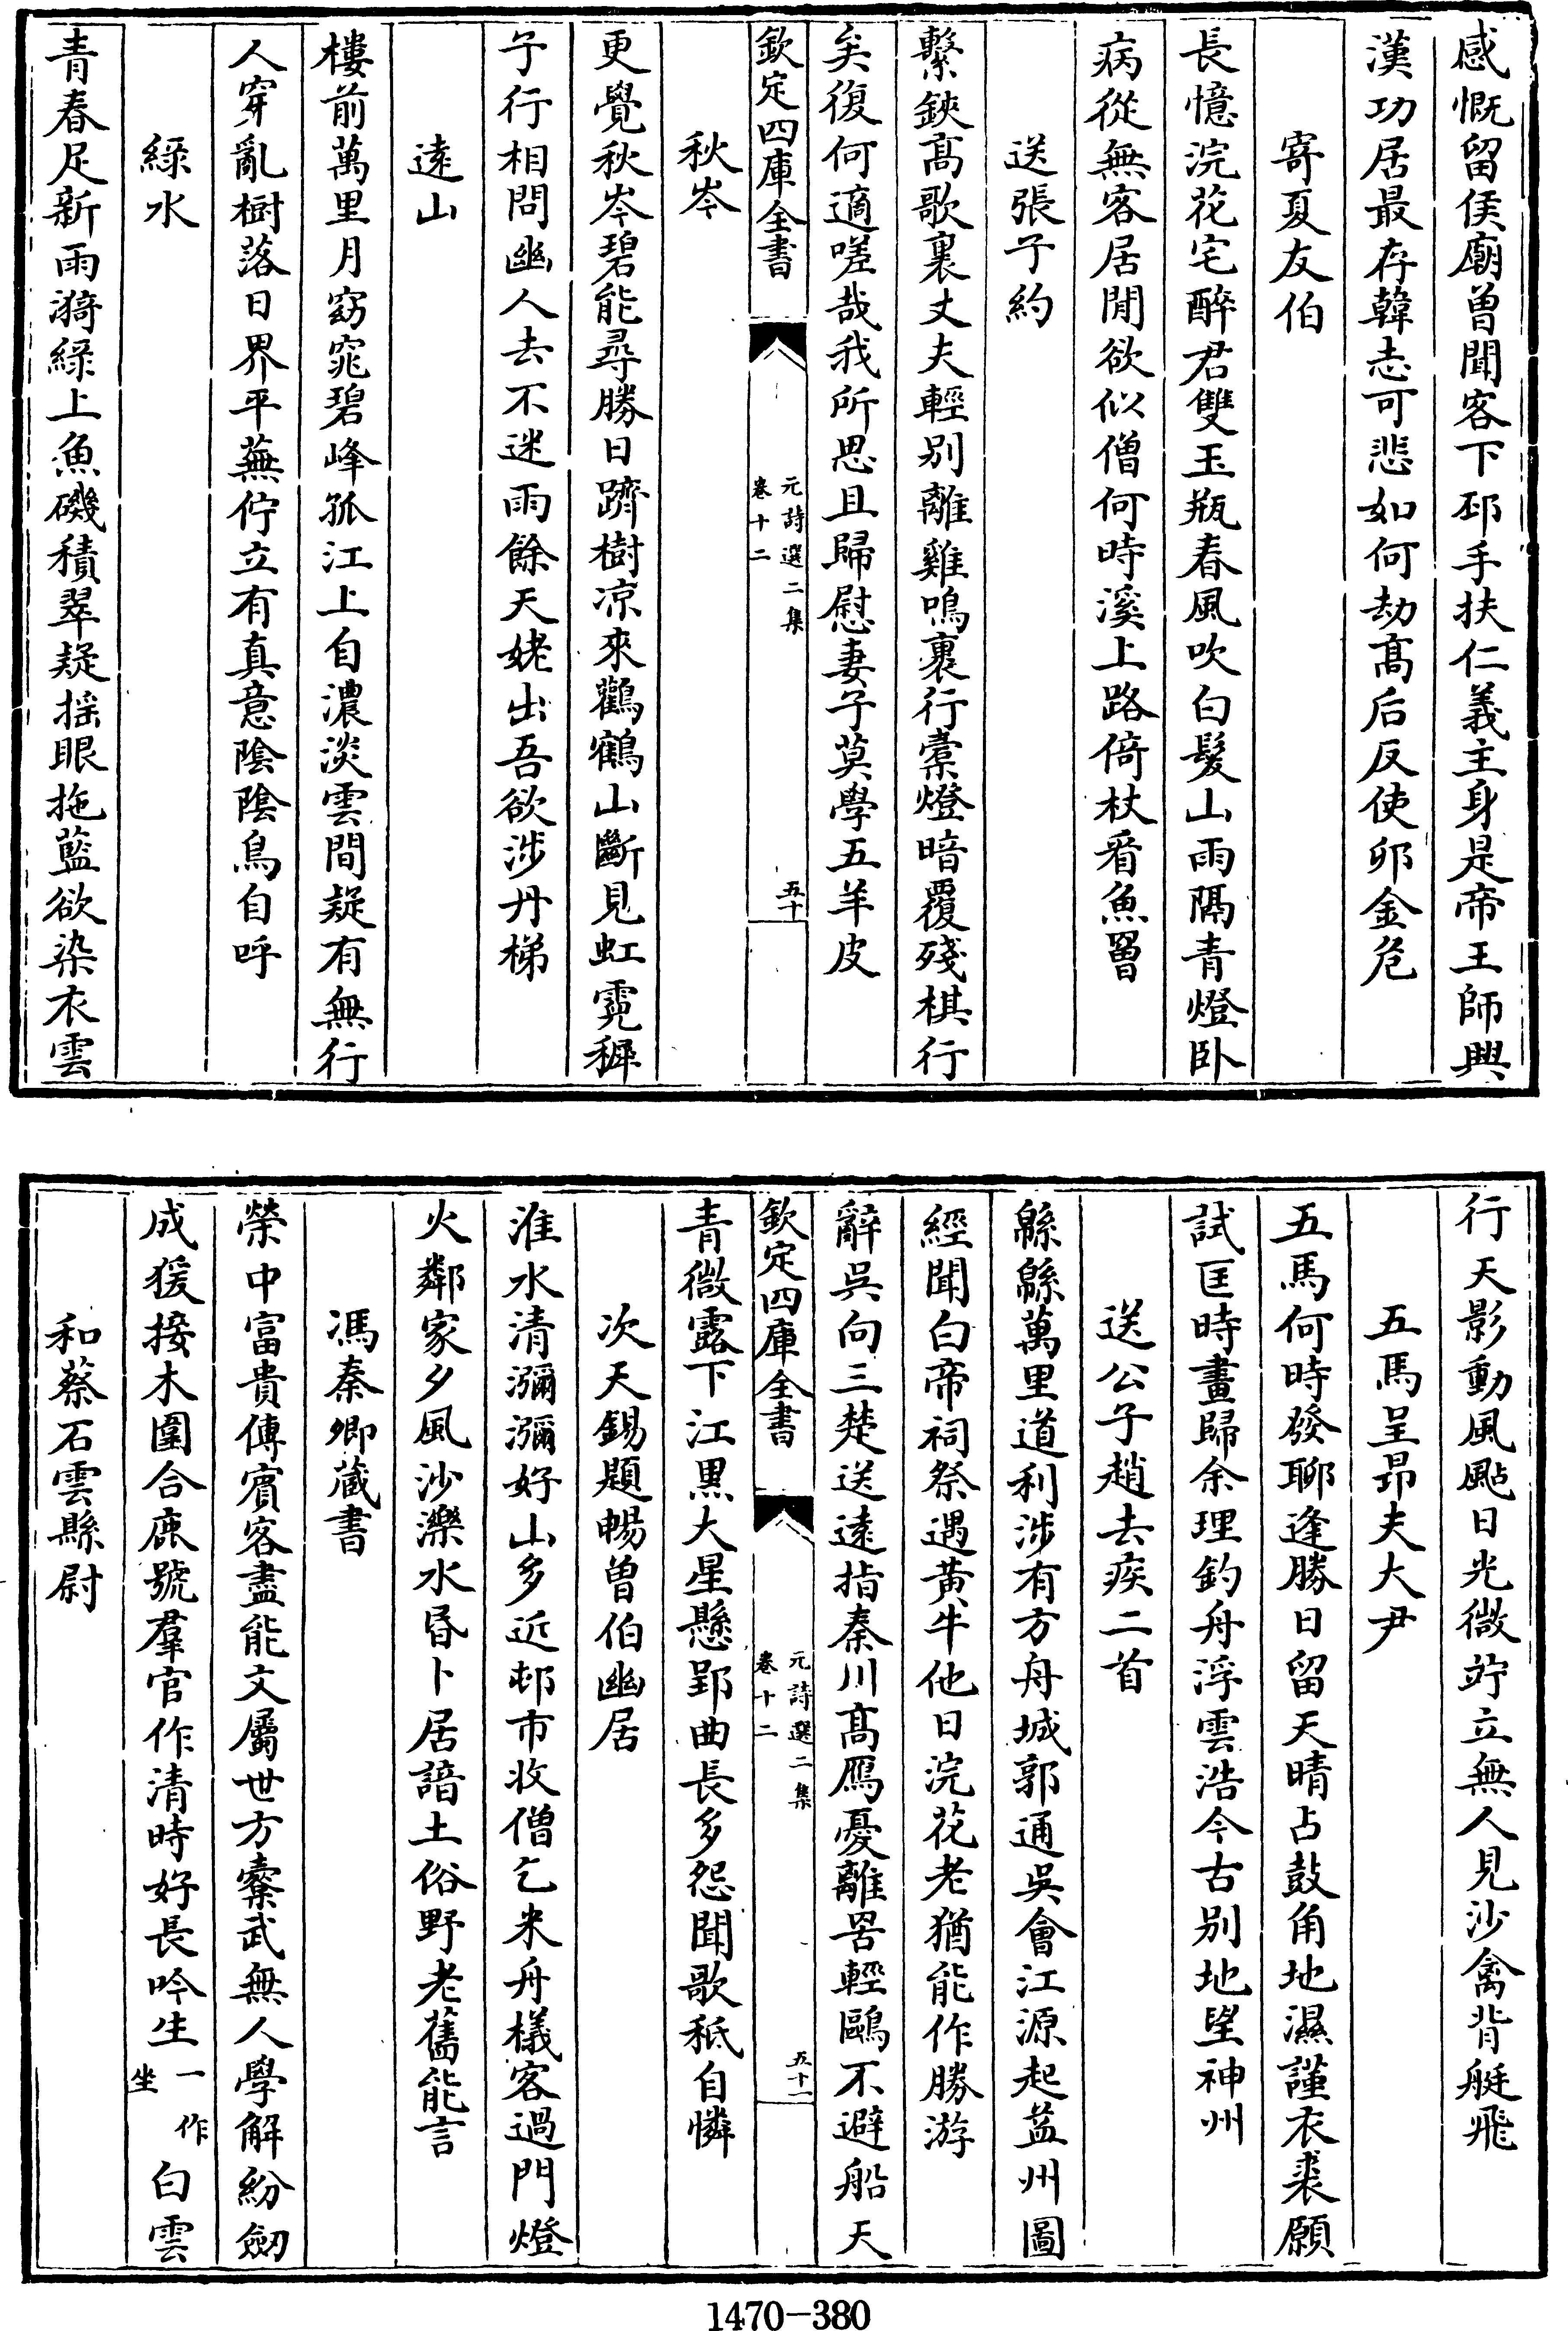 感慨留侯廟曽聞客下邳手扶仁義主身是帝王師興
漢功居最存韓志可悲如何劫髙后反使卯金危
寄夏友伯
長憶浣花宅醉君雙玉瓶春風吹白髮山雨隔青燈卧
病從無客居閒欲似僧何時溪上路倚杖看魚罾
送張子約
繫鋏髙歌裏丈夫輕别離雞鳴裹行橐燈暗覆殘棋行
矣復何適嗟哉我所思且歸慰妻子莫學五羊皮
欽定四庫全書
元詩選二集
卷十二
五十
秋岑
更覺秋岑碧能尋勝日躋樹凉來鸛鶴山斷見虹霓穉
子行相問幽人去不迷雨餘天姥出吾欲涉丹梯
遠山
樓前萬里月窈窕碧峰孤江上自濃淡雲間疑有無行
人穿亂樹落日界平蕪佇立有真意陰陰鳥自呼
綠水
青春足新雨漪綠上魚磯積翠疑揺眼拖藍欲染衣雲
行天影動風颭日光微竚立無人見沙禽背艇飛
五馬呈昻夫大尹
五馬何時發聊逢勝日留天晴占鼓角地濕謹衣裘願
試匡時畫歸余理釣舟浮雲浩今古别地望神州
送公子趙去疾二首
緜緜萬里道利涉有方舟城郭通吳會江源起益州圖
經聞白帝祠祭遇黄牛他日浣花老猶能作勝游
辭吳向三楚送遠指秦川髙鴈憂離罟輕鷗不避船天
欽定四庫全書
元詩選二集
卷十二
五十一
青微露下江黒大星懸郢曲長多怨聞歌秪自憐
次天錫題暢曽伯幽居
淮水清瀰瀰好山多近邨市收僧乞米舟檥客過門燈
火鄰家夕風沙濼水昏卜居諳土俗野老舊能言
馮秦卿蔵書
榮中富貴傅賓客盡能文屬世方櫜武無人學解紛劒
成猨接木圍合鹿號羣官作清時好長吟生一作坐白雲
和蔡石雲縣尉
1470-380